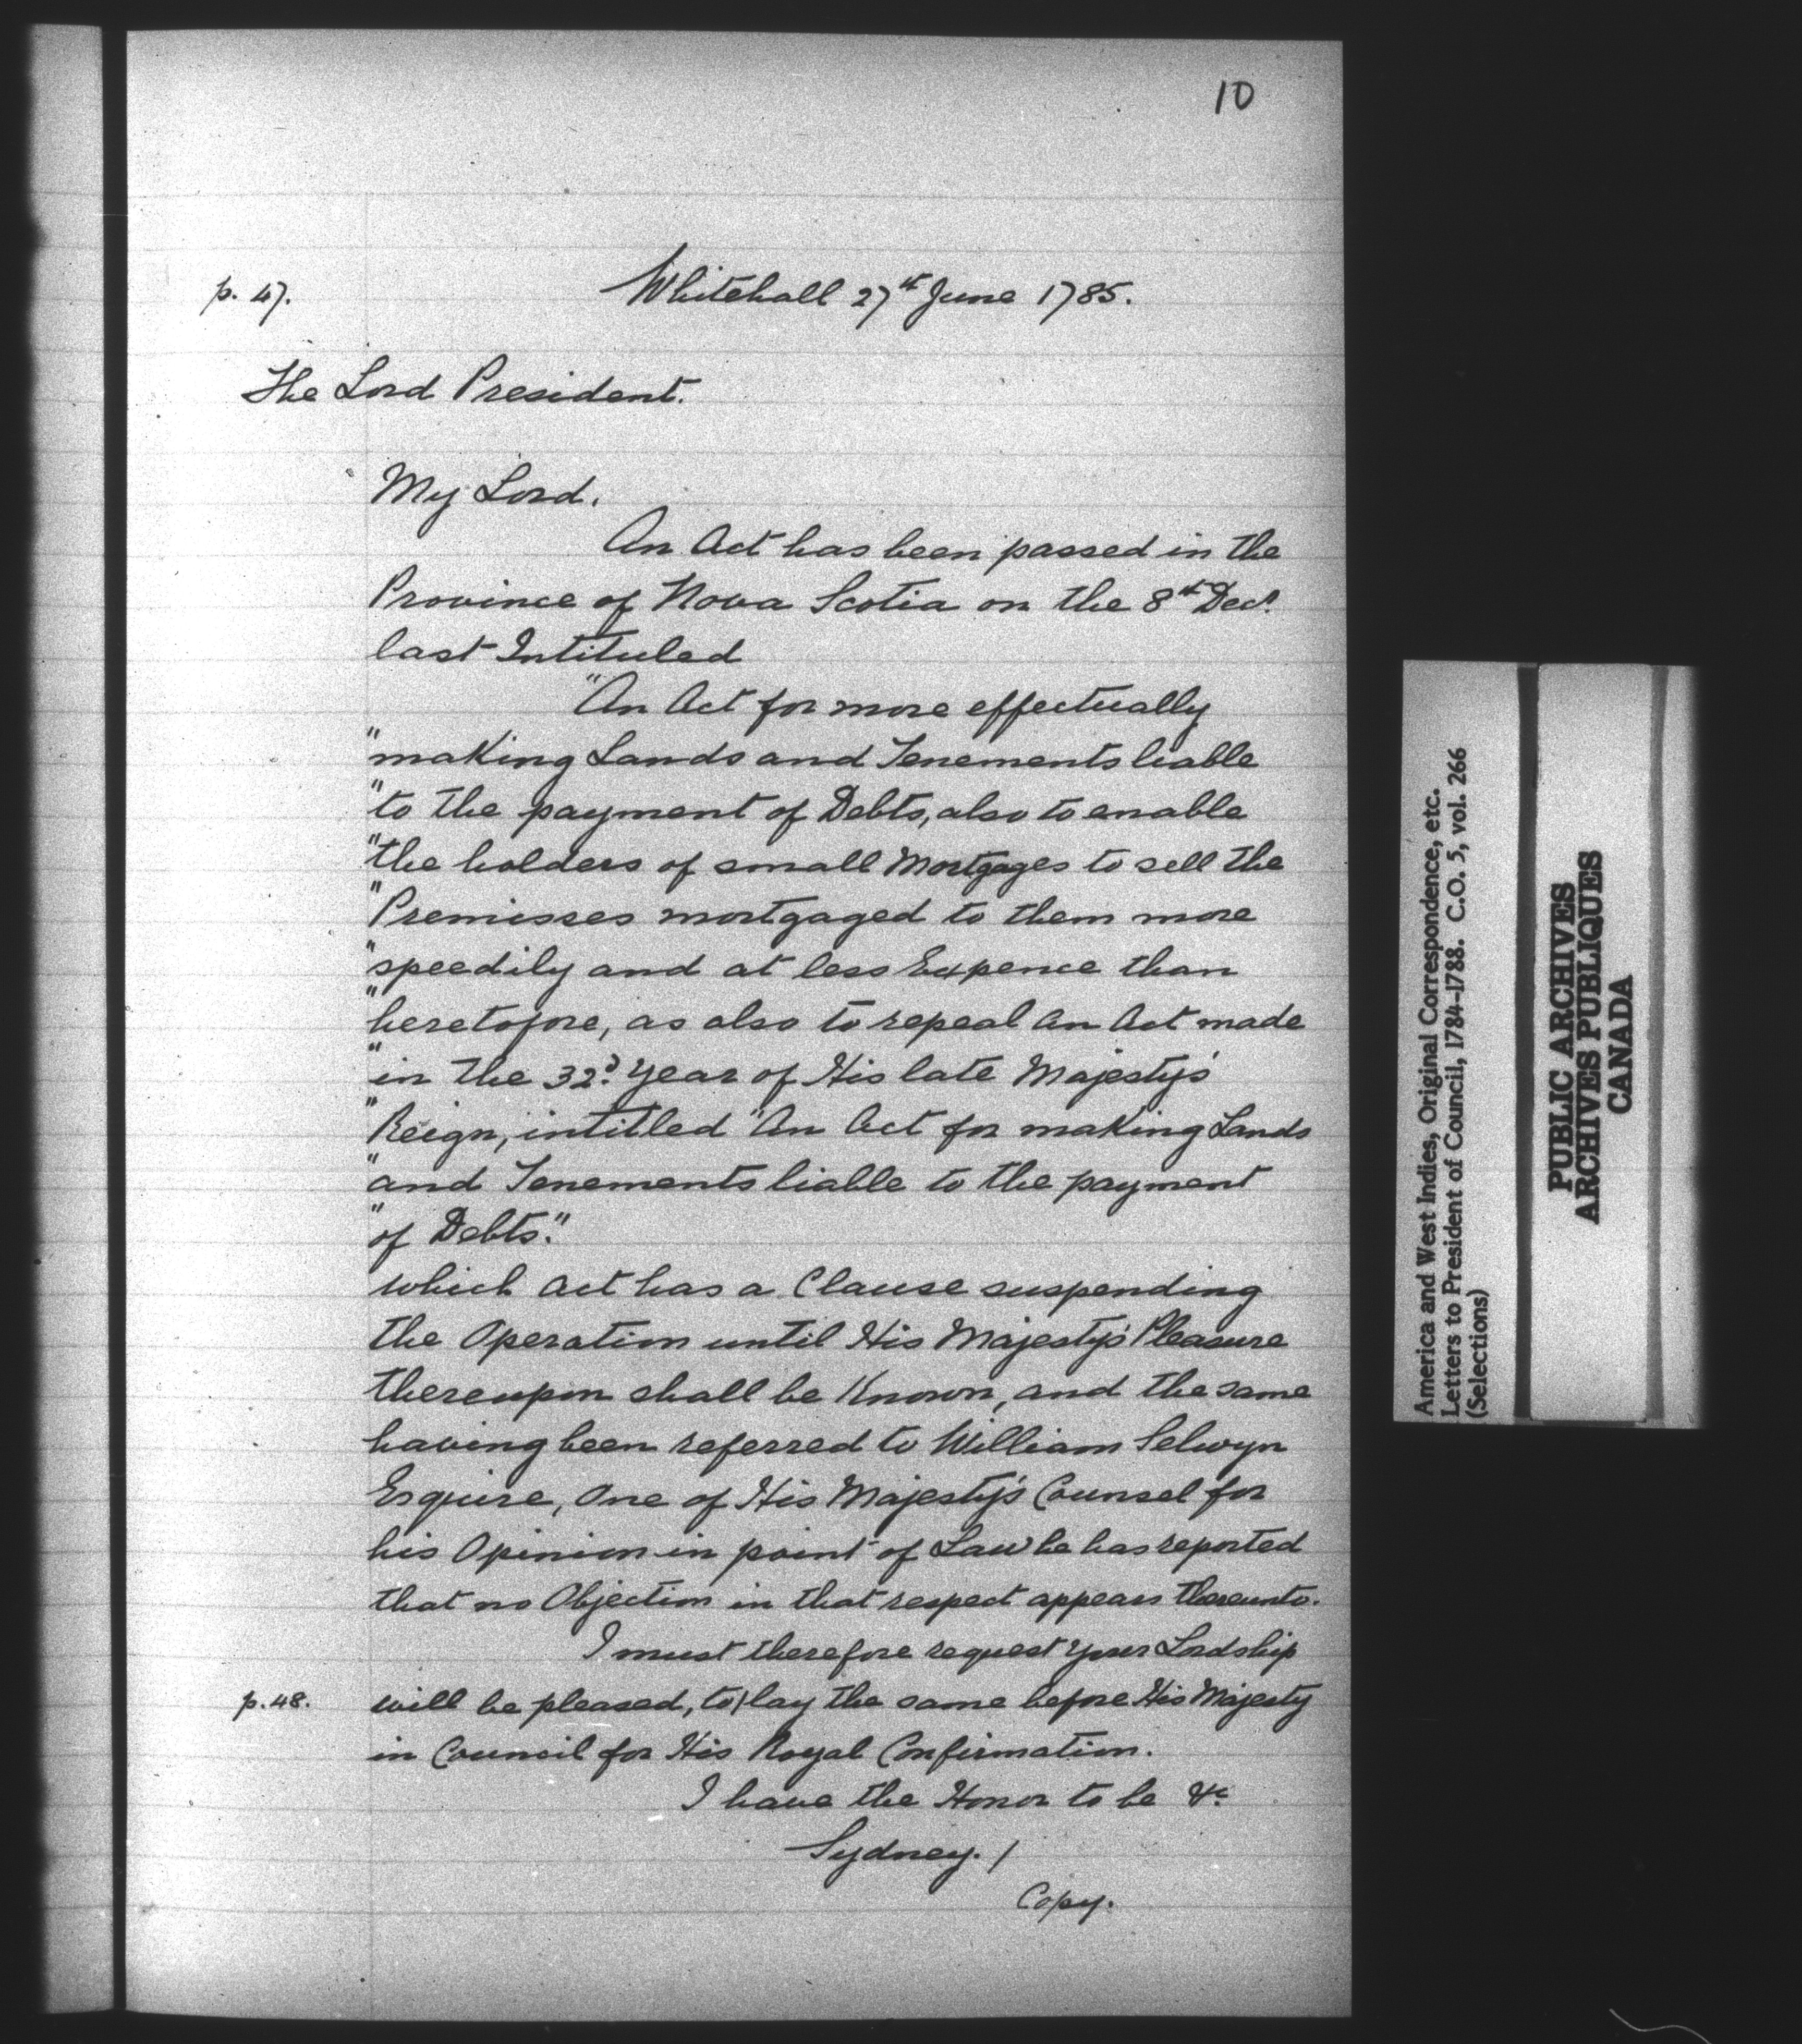 10
p. 47.
Whitehall 27th June 1785.
The Lord President.
My Lord.
An Act has been passed in the
Province of Nova Scotia on the 8th Decr.
last Intituled
"An Act for more effectually
"making Lands and Tenements liable
"to the payment of Debts, also to enable
"the holders of small Mortgages to sell the
"Premisses mortgaged to them more
"speedily and at less Expence than
"heretofore, as also to repeal an Act made
"in the 32d. Year of His late Majesty's
"Reign, intitled "An Act for making Lands
"and Tenements liable to the payment
"of Debts."
which Act has a Clause suspending
the Operation until His Majesty's Pleasure
thereupon shall be Known, and the same
having been referred to William Selwyn
Esquire, One of His Majesty's Counsel for
his Opinion in point of Law he has reported
that no Objection in that respect appears thereunto.
I must therefore request your Lordship
p. 48.
will be pleased, to/lay the same before His Majesty
in Council for His Royal Confirmation.
I have the Honor to be &c
Sydney. /
Copy.
America and West Indies, Original Correspondence, etc.
Letters to President of Council, 1784-1788. C.O. 5, vol. 266
(Selections)
PUBLIC ARCHIVES
ARCHIVES PUBLIQUES
CANADA